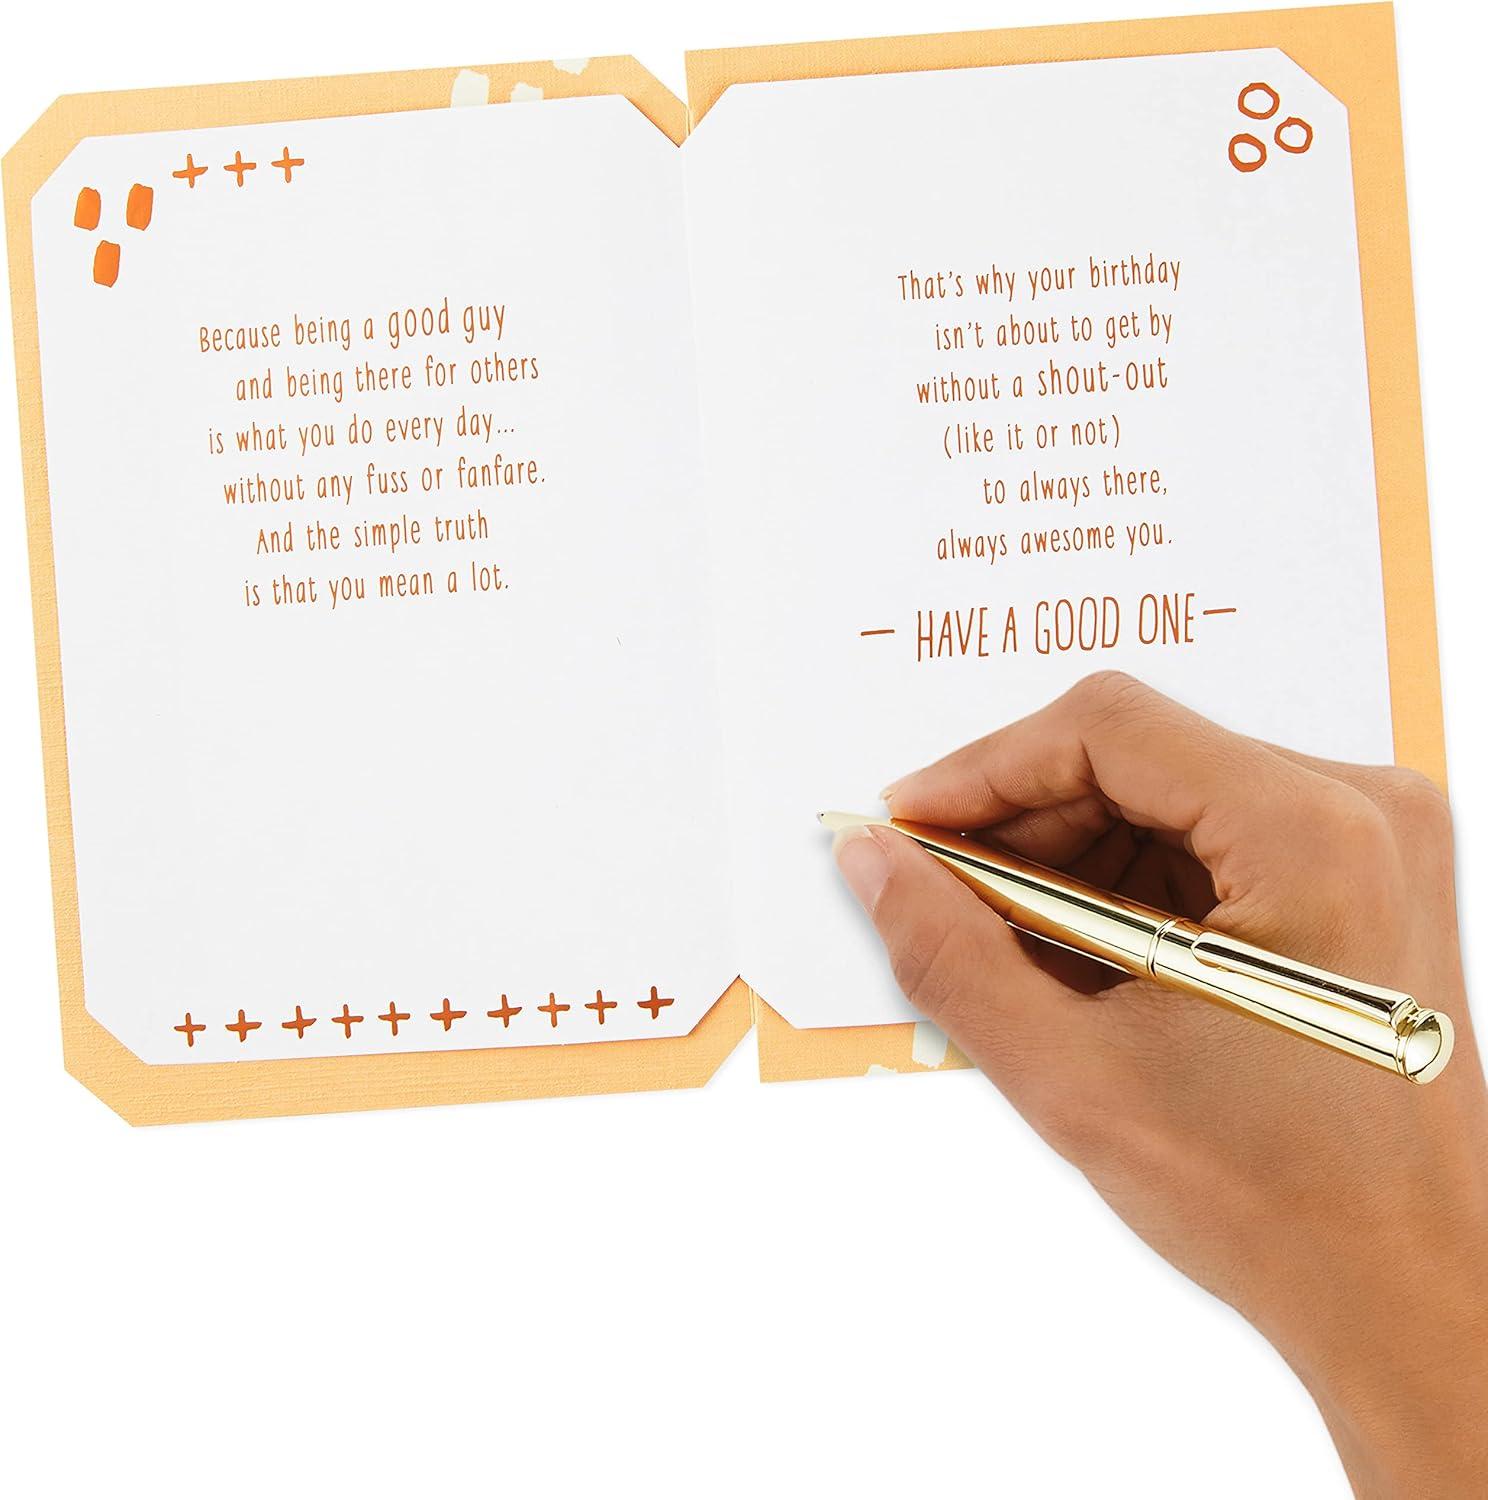 Because being a good guy
and being there for others
is what you do every day...
without any fuss or fanfare.
And the simple truth
is that you mean a lot.
That's why your birthday
isn't about to get by
without a shout-out
(like it or not)
to always there,
always awesome you.
— HAVE A GOOD ONE —